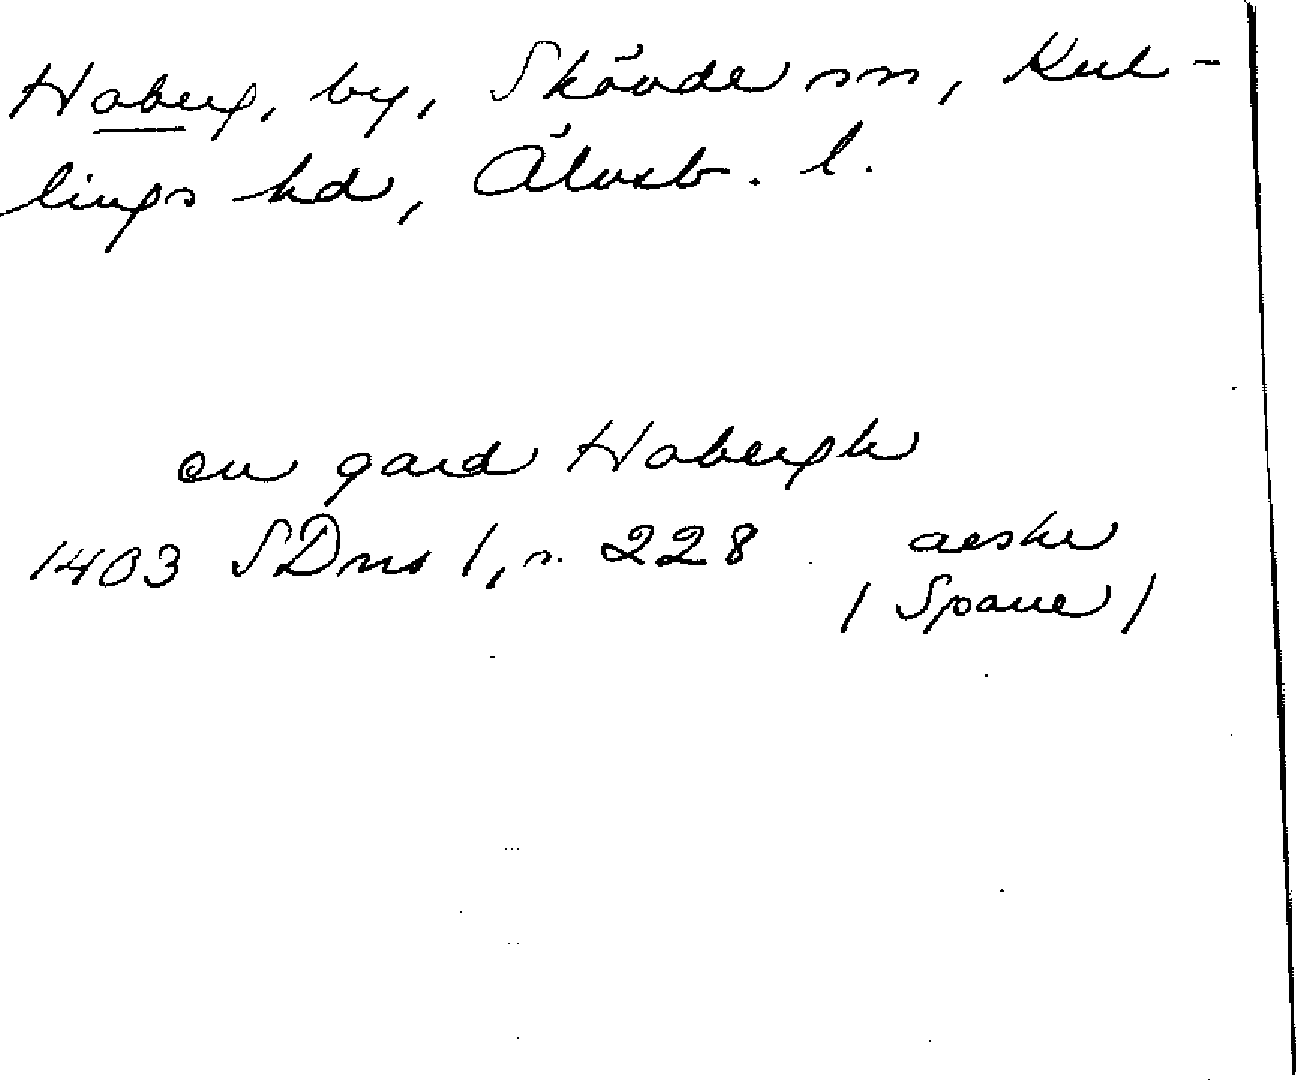 Hoberg, by, Skövde sn, Kul-
lings hd, Älvsb. l.
en gard Hobergh
1403 SDns 1, s. 228 aeske
/ Spane /